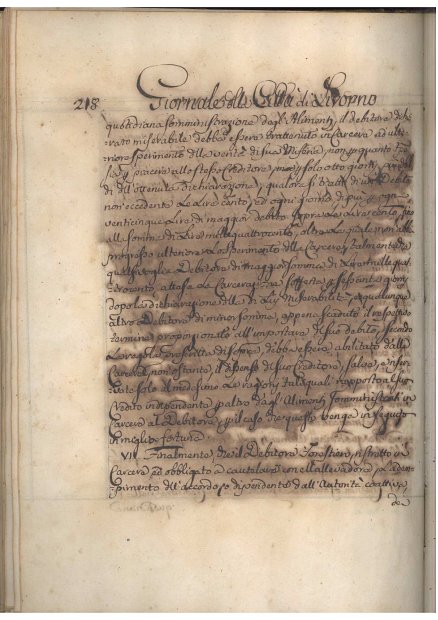 218 Giornale della Città di Livorno
quotidiana somministrazione degl'Alimenti, il debitore
miserabile debba essere trattenuto in Carcere ad ulte-
riore sperimento della verità di sua Miseria, non quanto
piacerà allo stesso Creditore, ma solo otto giorni,
di ottenuta dichiarazione, qualora si tratti di un Debito
non eccedente le Lire cento, ed ogni giorno di più ogni
venticinque Lire di maggior debito sopra le Lire cento, fino
alla somma di Lire mille quattrocento, oltre la quale non
progredirà ulteriore lo sperimento della Carcere, talmente che
qualsivoglia Debitore di maggior somma di Lire mille quat-
trocento, attesa la Carcerazione sofferta per sessanta giorni
dopo la dichiarazione della di Lui miserabilità, e qualunque
altro Debitore di minor somma, appena scaduto il respettivo
termine proporzionato all'importare del suo debito, secondo
la regola prescritta di sopra, debba essere abilitato dalla
Carcere, non ostante il dissenso del suo Creditore, salve, e riser-
vate solo al medesimo le ragioni tali quali rapporto al suo
Credito indipendente, e altro degl'Alimenti somministrati in
Carcere al Debitore, per il caso che questo venga in seguito
di miglior fortuna
VII. Finalmente, che il Debitore Forestiero ristretto in
Carcere, ed obbligato a cautelare con Mallevadore, per l'adem-
pimento dell'accordo, o dipendente dall'Autorità coattiva